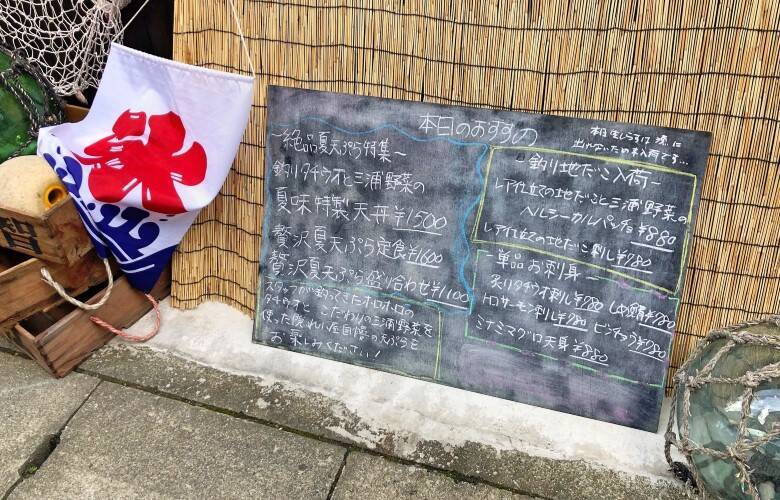 本日のおすすめ
本日生しらすは漁に
出れないため未入荷です…
〜絶品夏天ぷら特集〜
釣りタチウオと三浦野菜の
夏味特製天丼¥1500
贅沢夏天ぷら定食¥1600
贅沢夏天ぷら盛り合わせ¥1100
スタッフが釣ってきたホロホロの
タチウオと こだわりの三浦野菜を
使った
天ぷらを
お楽しみください!
ー釣り地だこ入荷ー
レア仕立の地だこと三浦野菜の
ヘルシーカルパッチョ¥880
レア仕立の地だこ刺し¥780
ー単品お刺身ー
炙りタチウオ刺し¥780 しめ鯖¥780
トロサーモン刺し¥780 ビンチョウ¥780
ミナミマグロ天身¥880